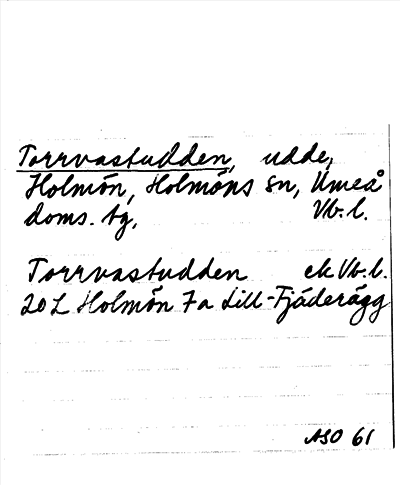 Torrvastudden, udde,
Holmön, Holmöns sn, Umeå
doms. tg, Vb. l.
Torrvastudden ek Vb. l.
20 L Holmön 7a Lill-Fjäderägg
ASO 61